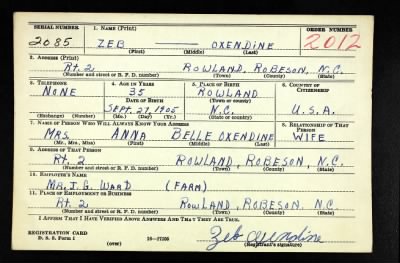 SERIAL NUMBER 1. NAME (Print) ORDER NUMBER
2085 ZEB OXENDINE 2012
(First) (Middle) (Last)
2. ADDRESS (Print)
Rt. 2 ROWLAND, ROBESON, N.C.
(Number and street or R. F. D. number) (Town) (County) (State)
3. TELEPHONE 4. AGE IN YEARS 5. PLACE OF BIRTH 6. COUNTRY OF CITIZENSHIP
NONE 35 ROWLAND
DATE OF BIRTH (Town or county)
SEPT. 27, 1905 N.C. U.S.A.
(Exchange) (Number) (Mo.) (Day) (Yr.) (State or country)
7. NAME OF PERSON WHO WILL ALWAYS KNOW YOUR ADDRESS 8. RELATIONSHIP OF THAT PERSON
MRS. ANNA BELLE OXENDINE WIFE
(Mr., Mrs., Miss) (First) (Middle) (Last)
9. ADDRESS OF THAT PERSON
Rt. 2 ROWLAND, ROBESON, N.C.
(Number and street or R. F. D. number) (Town) (County) (State)
10. EMPLOYER'S NAME
MR. J. G. WARD (FARM)
11. PLACE OF EMPLOYMENT OR BUSINESS
Rt. 2 ROWLAND, ROBESON, N.C.
(Number and street or R. F. D. number) (Town) (County) (State)
I AFFIRM THAT I HAVE VERIFIED ABOVE ANSWERS AND THAT THEY ARE TRUE.
REGISTRATION CARD
D. S. S. Form 1 (over) 16—17105 Zeb Oxendine
(Registrant's signature)